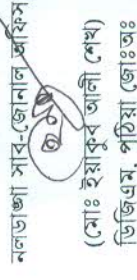 নলডাঙ্গা সাব-জোনাল অফিস
(মোঃ ইয়াকুব আলী শেখ)
ডিজিএম, পুঠিয়া জোঃঅঃ